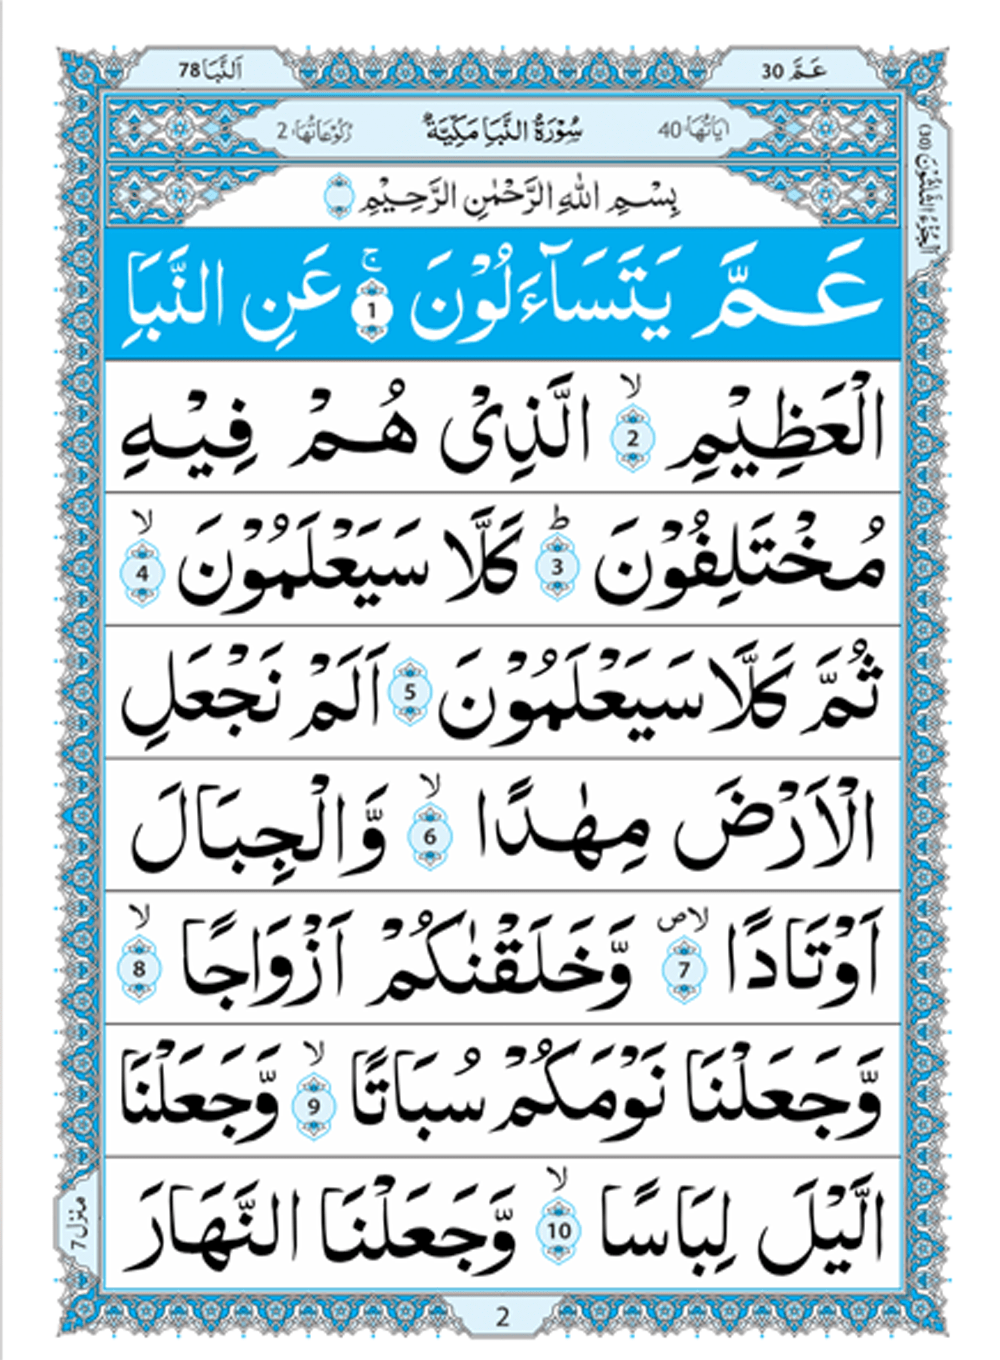 عَمَّ 30
اَلنَّبَا 78
اٰيَاتُهَا 40
سُوْرَةُ النَّبَا مَكِّيَّةٌ
رُكُوْعَاتُهَا 2
اَلْجُزْءُ الثَّلٰثُوْنَ (30)
بِسْمِ اللّٰهِ الرَّحْمٰنِ الرَّحِيْمِ
عَمَّ يَتَسَآءَلُوْنَ ۚ 1 عَنِ النَّبَاِ
الْعَظِيْمِ ۙ 2 الَّذِىْ هُمْ فِيْهِ
مُخْتَلِفُوْنَ ؕ 3 كَلَّا سَيَعْلَمُوْنَ ۙ 4
ثُمَّ كَلَّا سَيَعْلَمُوْنَ 5 اَلَمْ نَجْعَلِ
الْاَرْضَ مِهٰدًا ۙ 6 وَّالْجِبَالَ
اَوْتَادًا ۙص 7 وَّخَلَقْنٰكُمْ اَزْوَاجًا ۙ 8
وَّجَعَلْنَا نَوْمَكُمْ سُبَاتًا ۙ 9 وَّجَعَلْنَا
الَّيْلَ لِبَاسًا ۙ 10 وَّجَعَلْنَا النَّهَارَ
منزل 7
2